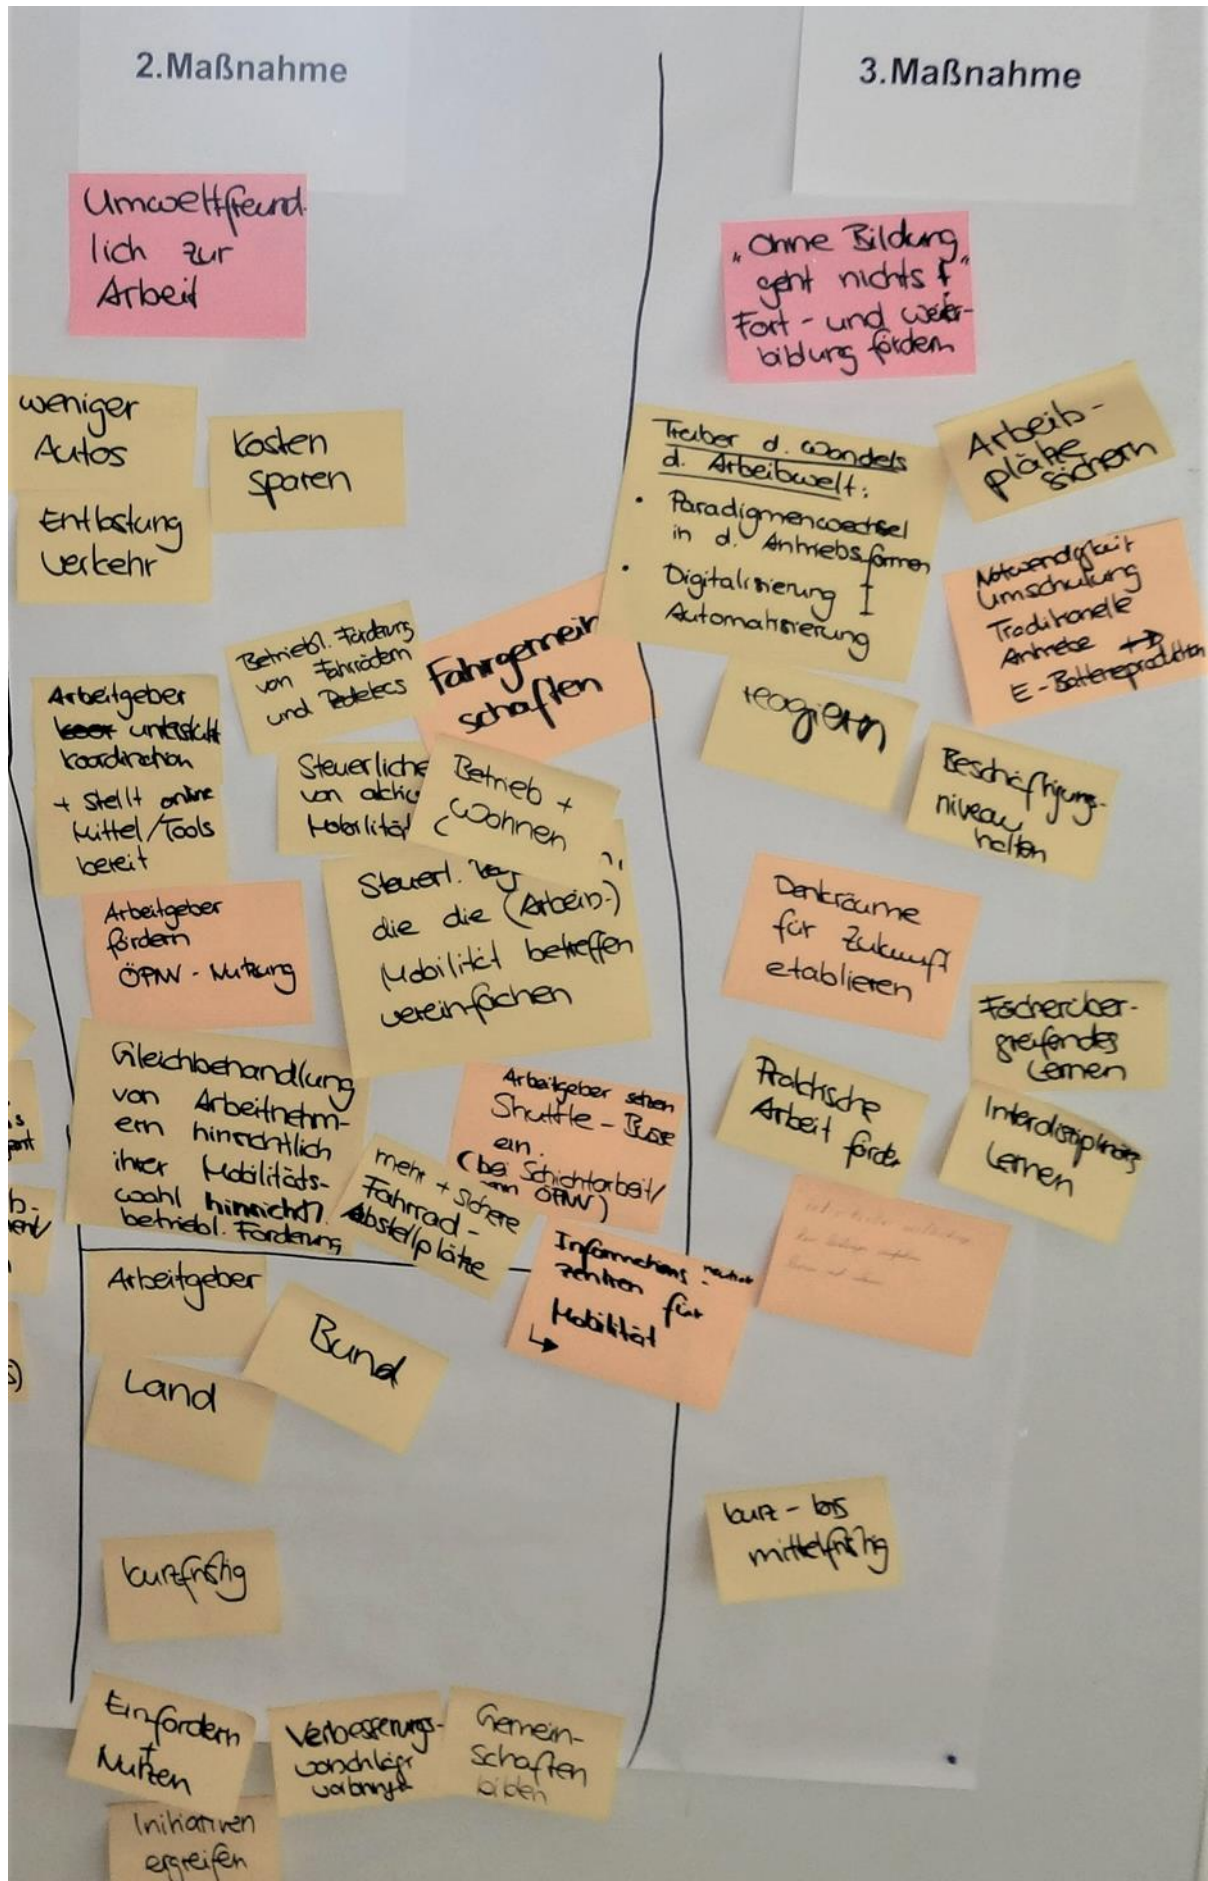 2.Maßnahme
Umweltfreund-
lich zur
Arbeit
weniger
Autos
Kosten
sparen
Entlastung
Verkehr
Betriebl. Förderung
von Fahrrädern
und Pedelecs
Fahrgemein
schaften
Arbeitgeber
unterstützt
Koordination
+ stellt online
Mittel/Tools
bereit
Steuerliche
von aktiv
Mobilität
Betrieb +
Wohnen
Arbeitgeber
fördern
ÖPNV - Nutzung
Steuerl.
die die (Arbeits-)
Mobilität betreffen
vereinfachen
Gleichbehandlung
von Arbeitnehm-
ern hinsichtlich
ihrer Mobilitäts-
wahl hinsichtl.
betriebl. Förderung
mehr + sichere
Fahrrad-
Abstellplätze
Arbeitgeber setzen
Shuttle - Busse
ein.
(bei Schichtarbeit/
ÖPNV)
Informations-
zentren für
Mobilität
↳
Arbeitgeber
Bund
Land
kurzfristig
Einfordern
+
Nutzen
Verbesserungs-
vorschläge
vorbringen
Gemein-
schaften
bilden
Initiativen
ergreifen
3.Maßnahme
„Ohne Bildung
geht nichts!"
Fort- und Weiter-
bildung fördern
Treiber d. Wandels
d. Arbeitswelt:
• Paradigmenwechsel
in d. Antriebsformen
• Digitalisierung
Automatisierung
Arbeits-
plätze
sichern
Notwendigkeit
Umschulung
Traditionelle
Antriebe ↔
E-Batterieproduktion
reagieren
Beschäftigungs-
niveau
halten
Denkräume
für Zukunft
etablieren
Fächerüber-
greifendes
Lernen
Praktische
Arbeit fördern
Interdisziplinäres
Lernen
kurz - bis
mittelfristig